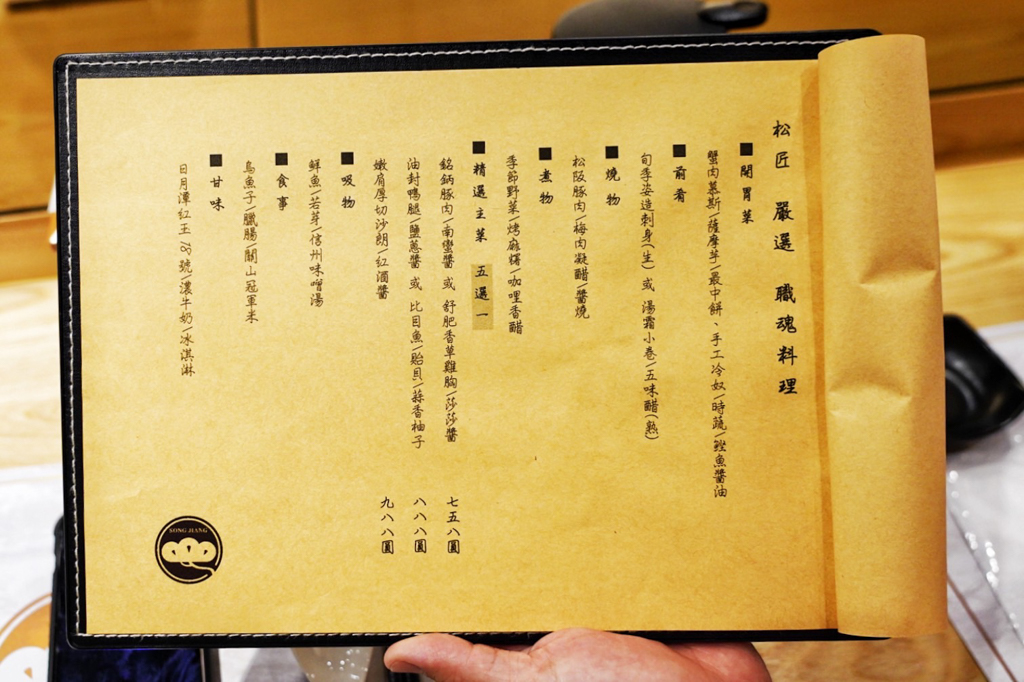 松匠 嚴選 職魂料理
■開胃菜
蟹肉慕斯/薩摩芋/最中餅、手工冷奴/時蔬/鰹魚醬油
■前肴
旬季姿造刺身(生) 或 湯霜小卷/五味醋(熟)
■燒物
松阪豚肉/梅肉凝醋/醬燒
■煮物
季節野菜/烤麻糬/咖哩香醋
■精選主菜 五選一
銘鈵豚肉/南蠻醬 或 舒肥香草雞胸/莎莎醬 七五八圓
油封鴨腿/鹽蔥醬 或 比目魚/貽貝/蒜香柚子 八八八圓
嫩肩厚切沙朗/紅酒醬 九八八圓
■吸物
鮮魚/若芽/信州味噌湯
■食事
烏魚子/臘腸/關山冠軍米
■甘味
日月潭紅玉18號/濃牛奶/冰淇淋
SONG JIANG